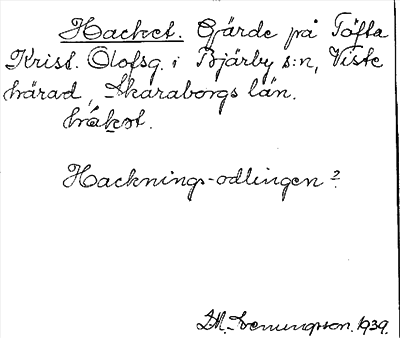 Hacket. Gärde på Töfta
Krist. Olofsg. i Bjärby s:n, Viste
härad, Skaraborgs län.
håkət.
Hacknings-odlingen?
D.M. Svenungsson. 1939.